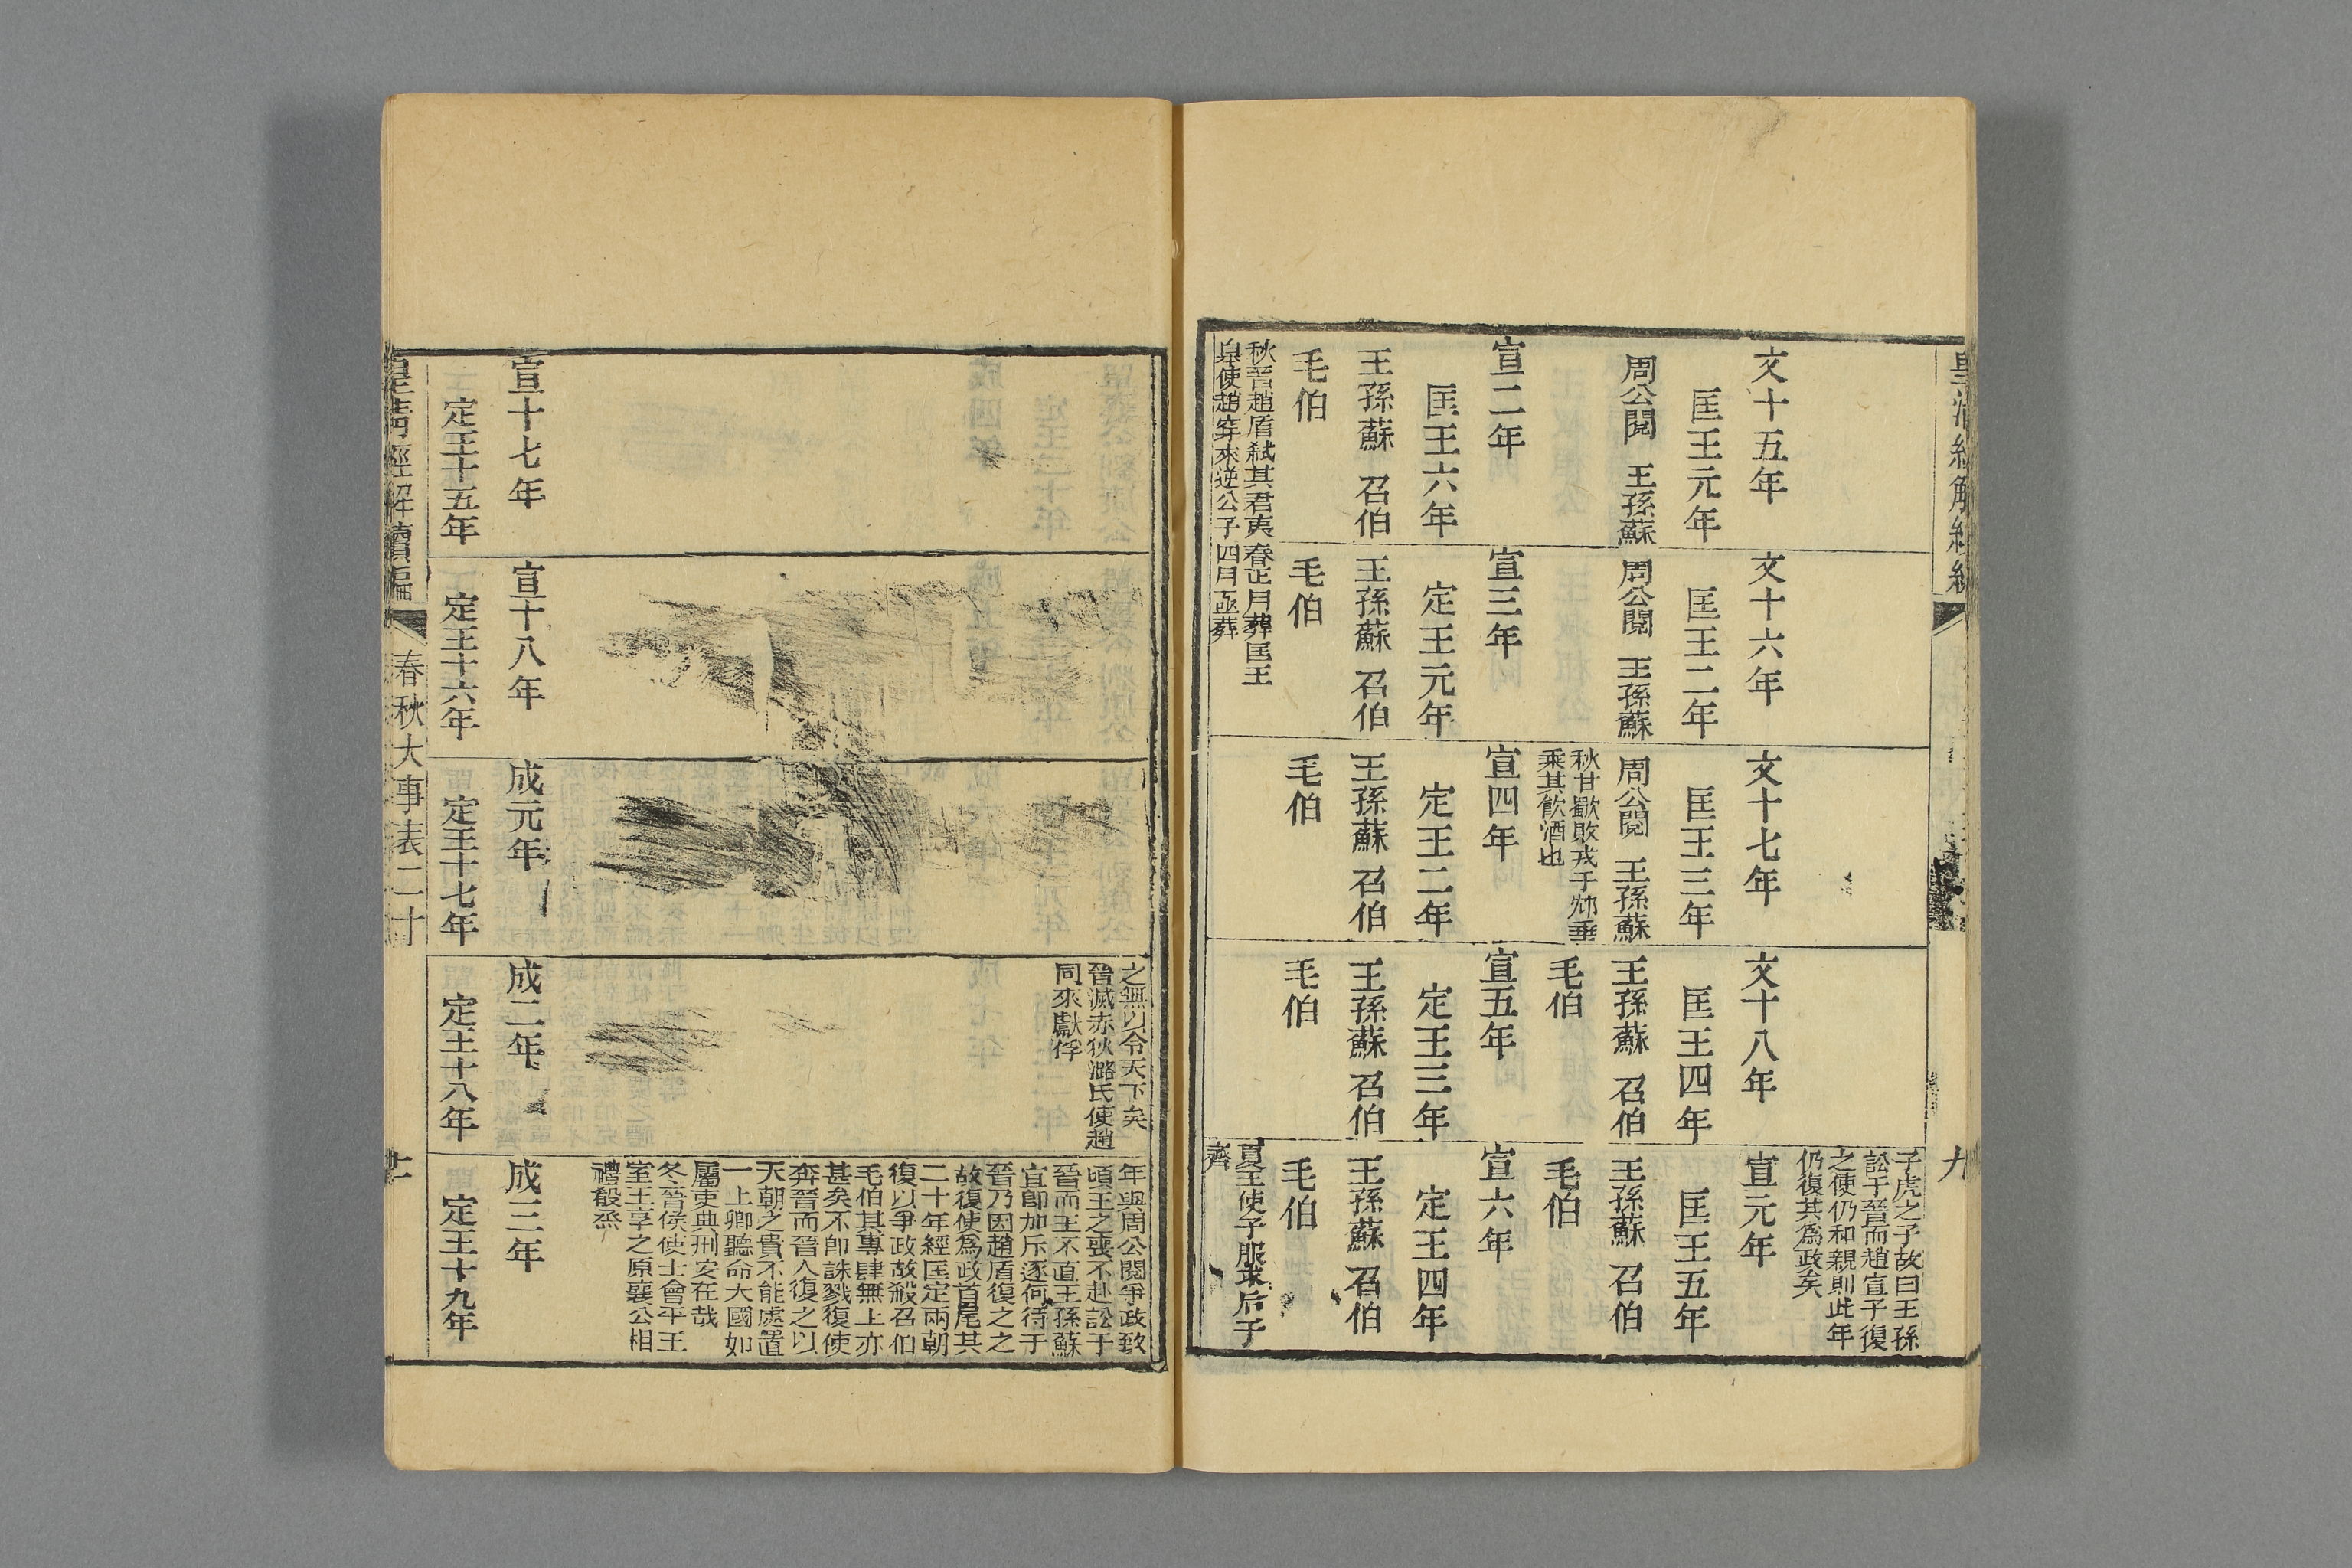 子虎之子故曰王孫
訟于晉而趙宣子復
之使仍和親則此年
仍復其爲政矣
文十五年
匡王元年
周公閱 王孫蘇
文十六年
匡王二年
周公閱 王孫蘇
文十七年
匡王三年
周公閱 王孫蘇
秋甘歜敗戎于邥垂
乘其飲酒也
文十八年
匡王四年
王孫蘇 召伯
毛伯
宣元年
匡王五年
王孫蘇 召伯
毛伯
宣二年
匡王六年
王孫蘇 召伯
毛伯
秋晉趙盾弑其君夷
臯使趙穿來逆公子
宣三年
定王元年
王孫蘇 召伯
毛伯
春正月葬匡王
四月亟葬
宣四年
定王二年
王孫蘇 召伯
毛伯
宣五年
定王三年
王孫蘇 召伯
毛伯
宣六年
定王四年
王孫蘇 召伯
毛伯
夏王使子服求后于
齊
九
之無以令天下矣
晉滅赤狄潞氏使趙
同來獻俘
年與周公閱爭政致
頃王之喪不赴訟于
晉而王不直王孫蘇
宜卽加斥逐何待于
晉乃因趙盾復之之
故復使爲政首尾其
二十年經匡定兩朝
復以爭政故殺召伯
毛伯其專肆無上亦
甚矣不卽誅戮復使
奔晉而晉人復之以
天朝之貴不能處置
一上卿聽命大國如
屬吏典刑安在哉
冬晉侯使士會平王
室王享之原襄公相
禮殽烝
宣十七年
定王十五年
宣十八年
定王十六年
成元年
定王十七年
成二年
定王十八年
成三年
定王十九年
皇清經解續編
春秋大事表二十